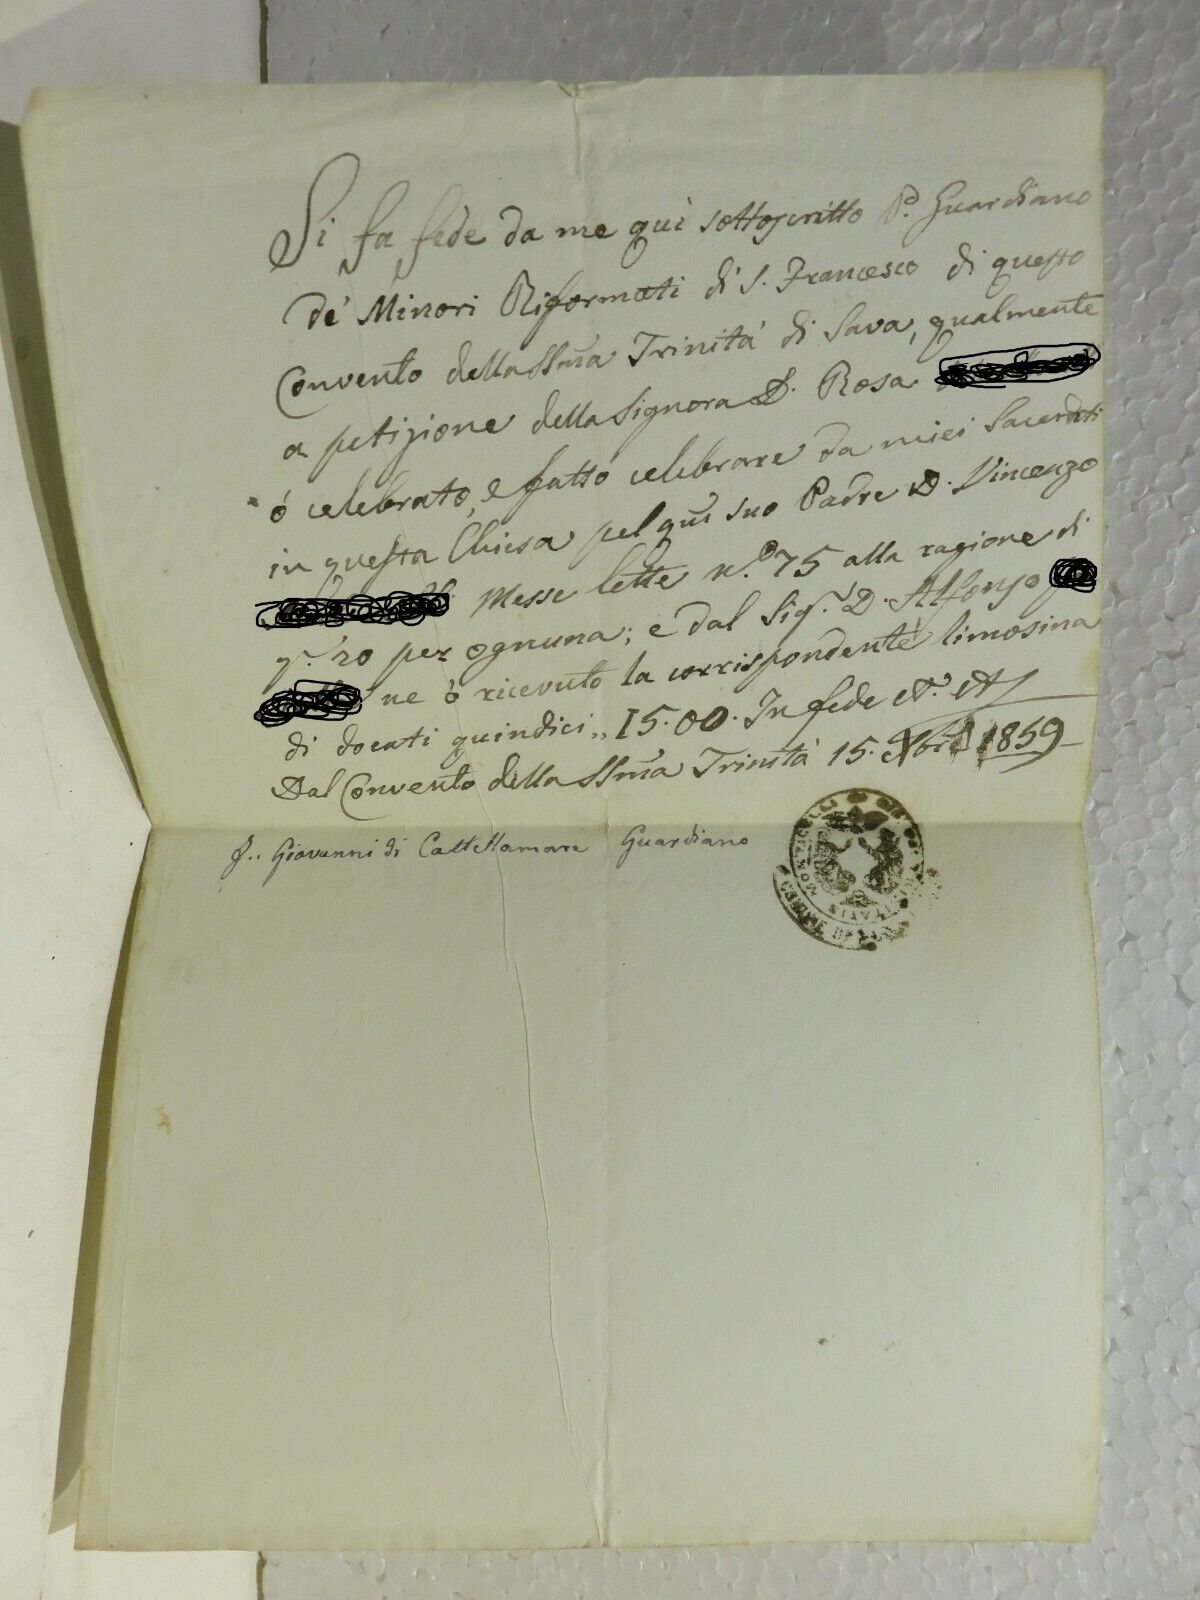 Si fa fede da me quì sottoscritto P.e Guardiano
de' Minori Riformati di S. Francesco di questo
Convento della SSma Trinità di Sava, qualmente
a petizione della Signora D. Rosa
ò celebrato, e fatto celebrare da miei Sacerdoti
in questa Chiesa pel qm suo Padre D. Vincenzo
Messe lette n.o 75 alla ragione di
g.a 20 per ognuna; e dal Sig.r D. Alfonso
ne ò ricevuto la corrispondente limosina
di docati quindici „ 15.00. In fede
Dal Convento della SSma Trinità 15. 1859
F.. Giovanni di Castellamare Guardiano